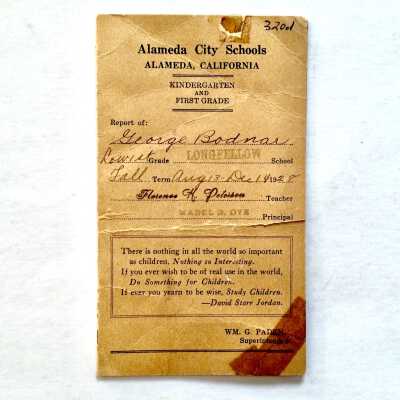 320d
Alameda City Schools
ALAMEDA, CALIFORNIA
KINDERGARTEN
AND
FIRST GRADE
Report of:
George Bodnar
Low 1st Grade LONGFELLOW School
Fall Term Aug 13 - Dec 14 1928
Florence H. Peterson Teacher
MABEL D. DYE Principal
There is nothing in all the world so important
as children, Nothing so Interesting.
If you ever wish to be of real use in the world,
Do Something for Children.
If ever you yearn to be wise, Study Children.
—David Starr Jordan.
WM. G. PADEN,
Superintendent